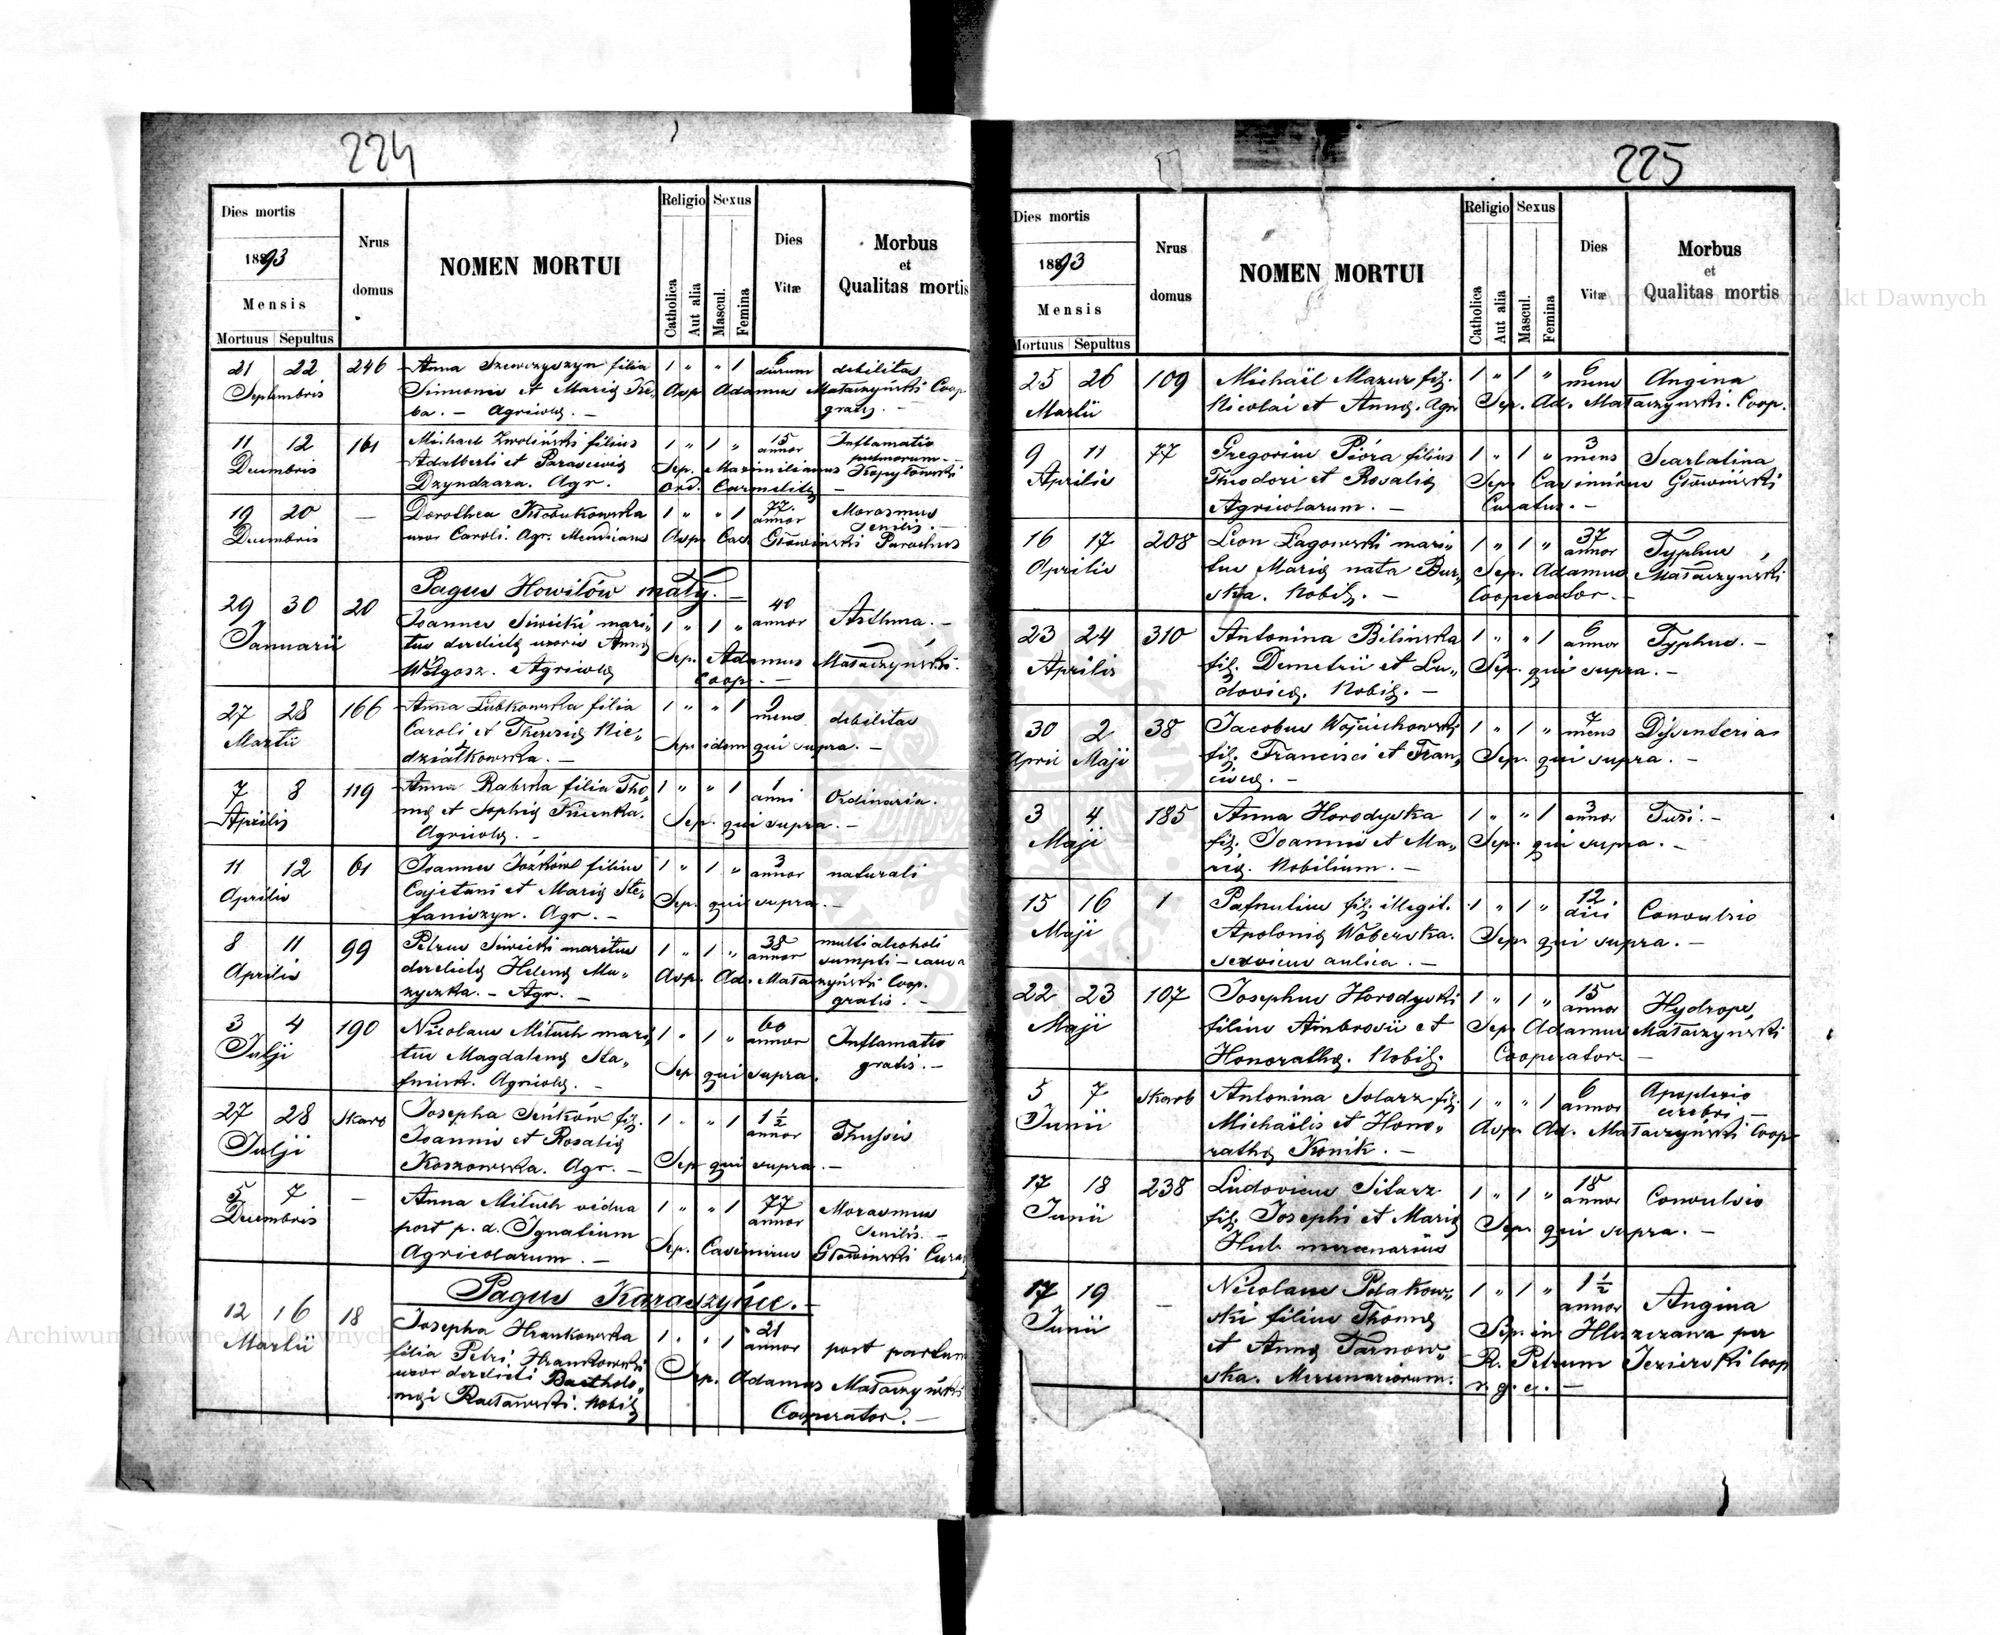 224
Dies mortis
1893
Mensis
Mortuus Sepultus
Nrus domus
NOMEN MORTUI
Religio Sexus
Catholica Aut alia Mascul. Femina
Dies Vitæ
Morbus et Qualitas mortis
21 22 246 Anna Szewczyszyn filia 1 " " 1 6 dierum debilitas
Septembris Simeonis et Mariæ Asp. Adamus Mataczyński Coop
Agricolæ. — gratis. —
11 12 161 Michael Zwoliński filius 1 " 1 " 15 annor Inflamatio
Decembris Adalberti et Parasceviæ Sep. Maximilianus Kopytowski pulmorum. —
Dzyndzara. Agr. Ord. Carmelitæ —
19 20 — Dorothea Kłobukowska 1 " " 1 77 annor Marasmus senilis. —
Decembris uxor Caroli. Agr. Asp. Cas. Głowiński Parochus
Pagus Howiłów mały. —
29 30 20 Joannes Siwicki mari- 1 " 1 " 40 annor Asthma. —
Januarii tus derelictæ uxoris Annæ Sep. Adamus Mataczyński.
Agricolæ Coop. —
27 28 166 Anna Łubkowska filia 1 " " 1 9 mens debilitas
Martii Caroli et Theresiæ Nie- Sep. idem qui supra. —
działkowska. —
7 8 119 Anna Rabska filia Tho- 1 " " 1 1 anni Ordinaria.
Aprilis mæ et Sophiæ Sep. qui supra. —
Agricolæ. —
11 12 61 Joannes Jóźków filius 1 " 1 " 3 annor naturali
Aprilis Cajetani et Mariæ Ste- Sep. qui supra. —
faniszyn. Agr. —
8 11 99 Petrus Siwicki maritus 1 " 1 " 38 annor multi alcoholi
Aprilis derelictæ Helenæ Mu- sumpti — causa
zyczka. — Agr. — Asp. Ad. Mataczyński Coop.
gratis. —
3 4 190 Nicolaus Miluch mari- 1 " 1 " 60 annor Inflamatio
Julji tus Magdalenæ Sta- Sep. qui supra. gratis. —
Agricolæ. —
27 28 Skarb Josepha Seńków fil. 1 " " 1 1 1/2 annor Thussis
Julji Joannis et Rosaliæ
Koszowska. Agr. — Sep. qui supra. —
5 7 — Anna Miluch vidua 1 " " 1 77 annor Marasmus
Decembris post p. d. Ignatium Senilis. —
Agricolarum. — Sep. Casimirus Głowiński Curat
Pagus Karaszyńce. —
12 16 18 Josepha Hrankowska 1 " " 1 21 annor post partum
Martii filia Petri Hrankowski
uxor derelicti Bartholo- Sep. Adamus Mataczyński
mæi Racławski. Nobil. Cooperator. —
225
Dies mortis
1893
Mensis
Mortuus Sepultus
Nrus domus
NOMEN MORTUI
Religio Sexus
Catholica Aut alia Mascul. Femina
Dies Vitæ
Morbus et Qualitas mortis
25 26 109 Michaël Mazur fil. 1 " 1 " 6 mens Angina
Martii Nicolai et Annæ. Agr Sep. Ad. Mataczyński. Coop.
9 11 77 Gregorius Pióra filius 1 " 1 " 3 mens Scarlatina
Aprilis Theodori et Rosaliæ Sep. Casimirus Głowiński
Agricolarum. — Curatus. —
16 17 208 Leon Łagowski mari- 1 " 1 " 37 annor Typhus
Aprilis tus Mariæ nata Bur- Sep. Adamus Mataczyński
ska. Nobil. — Cooperator. —
23 24 310 Antonina Bilinska 1 " " 1 6 annor Typhus. —
Aprilis fil. Demetrii et Lu- Sep. qui supra. —
dovicæ. Nobil. —
30 2 38 Jacobus Wojciechowski 1 " 1 " 7 mens Dÿsenteria
April Maji fil. Francisci et Fran- Sep. qui supra. —
ciscæ. —
3 4 185 Anna Horodyska 1 " " 1 3 annor Tusi. —
Maji fil. Joannis et Ma- Sep. qui supra. —
riæ. Nobilium. —
15 16 1 Pafnutius fil. illegit. 1 " 1 " 12 dici Convulsio
Maji Apoloniæ Woberska. Sep. qui supra. —
servicus aulica. —
22 23 107 Josephus Horodyski 1 " 1 " 15 annor Hydrops,
Maji filius Ambrosii et Sep. Adamus Mataczyński
Honorathæ. Nobil. Cooperator. —
5 7 Skarb Antonina Solarz fil. 1 " " 1 6 annor Apoplexio cerebri —
Junii Michaëlis et Hono- Asp. Ad. Mataczyński Coop
rathæ Konik. —
17 18 238 Ludovicus Sitarz 1 " 1 " 18 annor Convulsio
Junii fil. Josephi et Mariæ Sep. qui supra. —
Hub. mercenarius
17 19 — Nicolaus Polakow- 1 " 1 " 1 1/2 annor Angina
Junii ski filius Thomæ Sep. in Hleszczawa per
et Annæ Tarnow- R. Petrum Jezierski Coop
ska. Mercenariorum. r. g. c. —
Archiwum Główne Akt Dawnych
Archiwum Główne Akt Dawnych